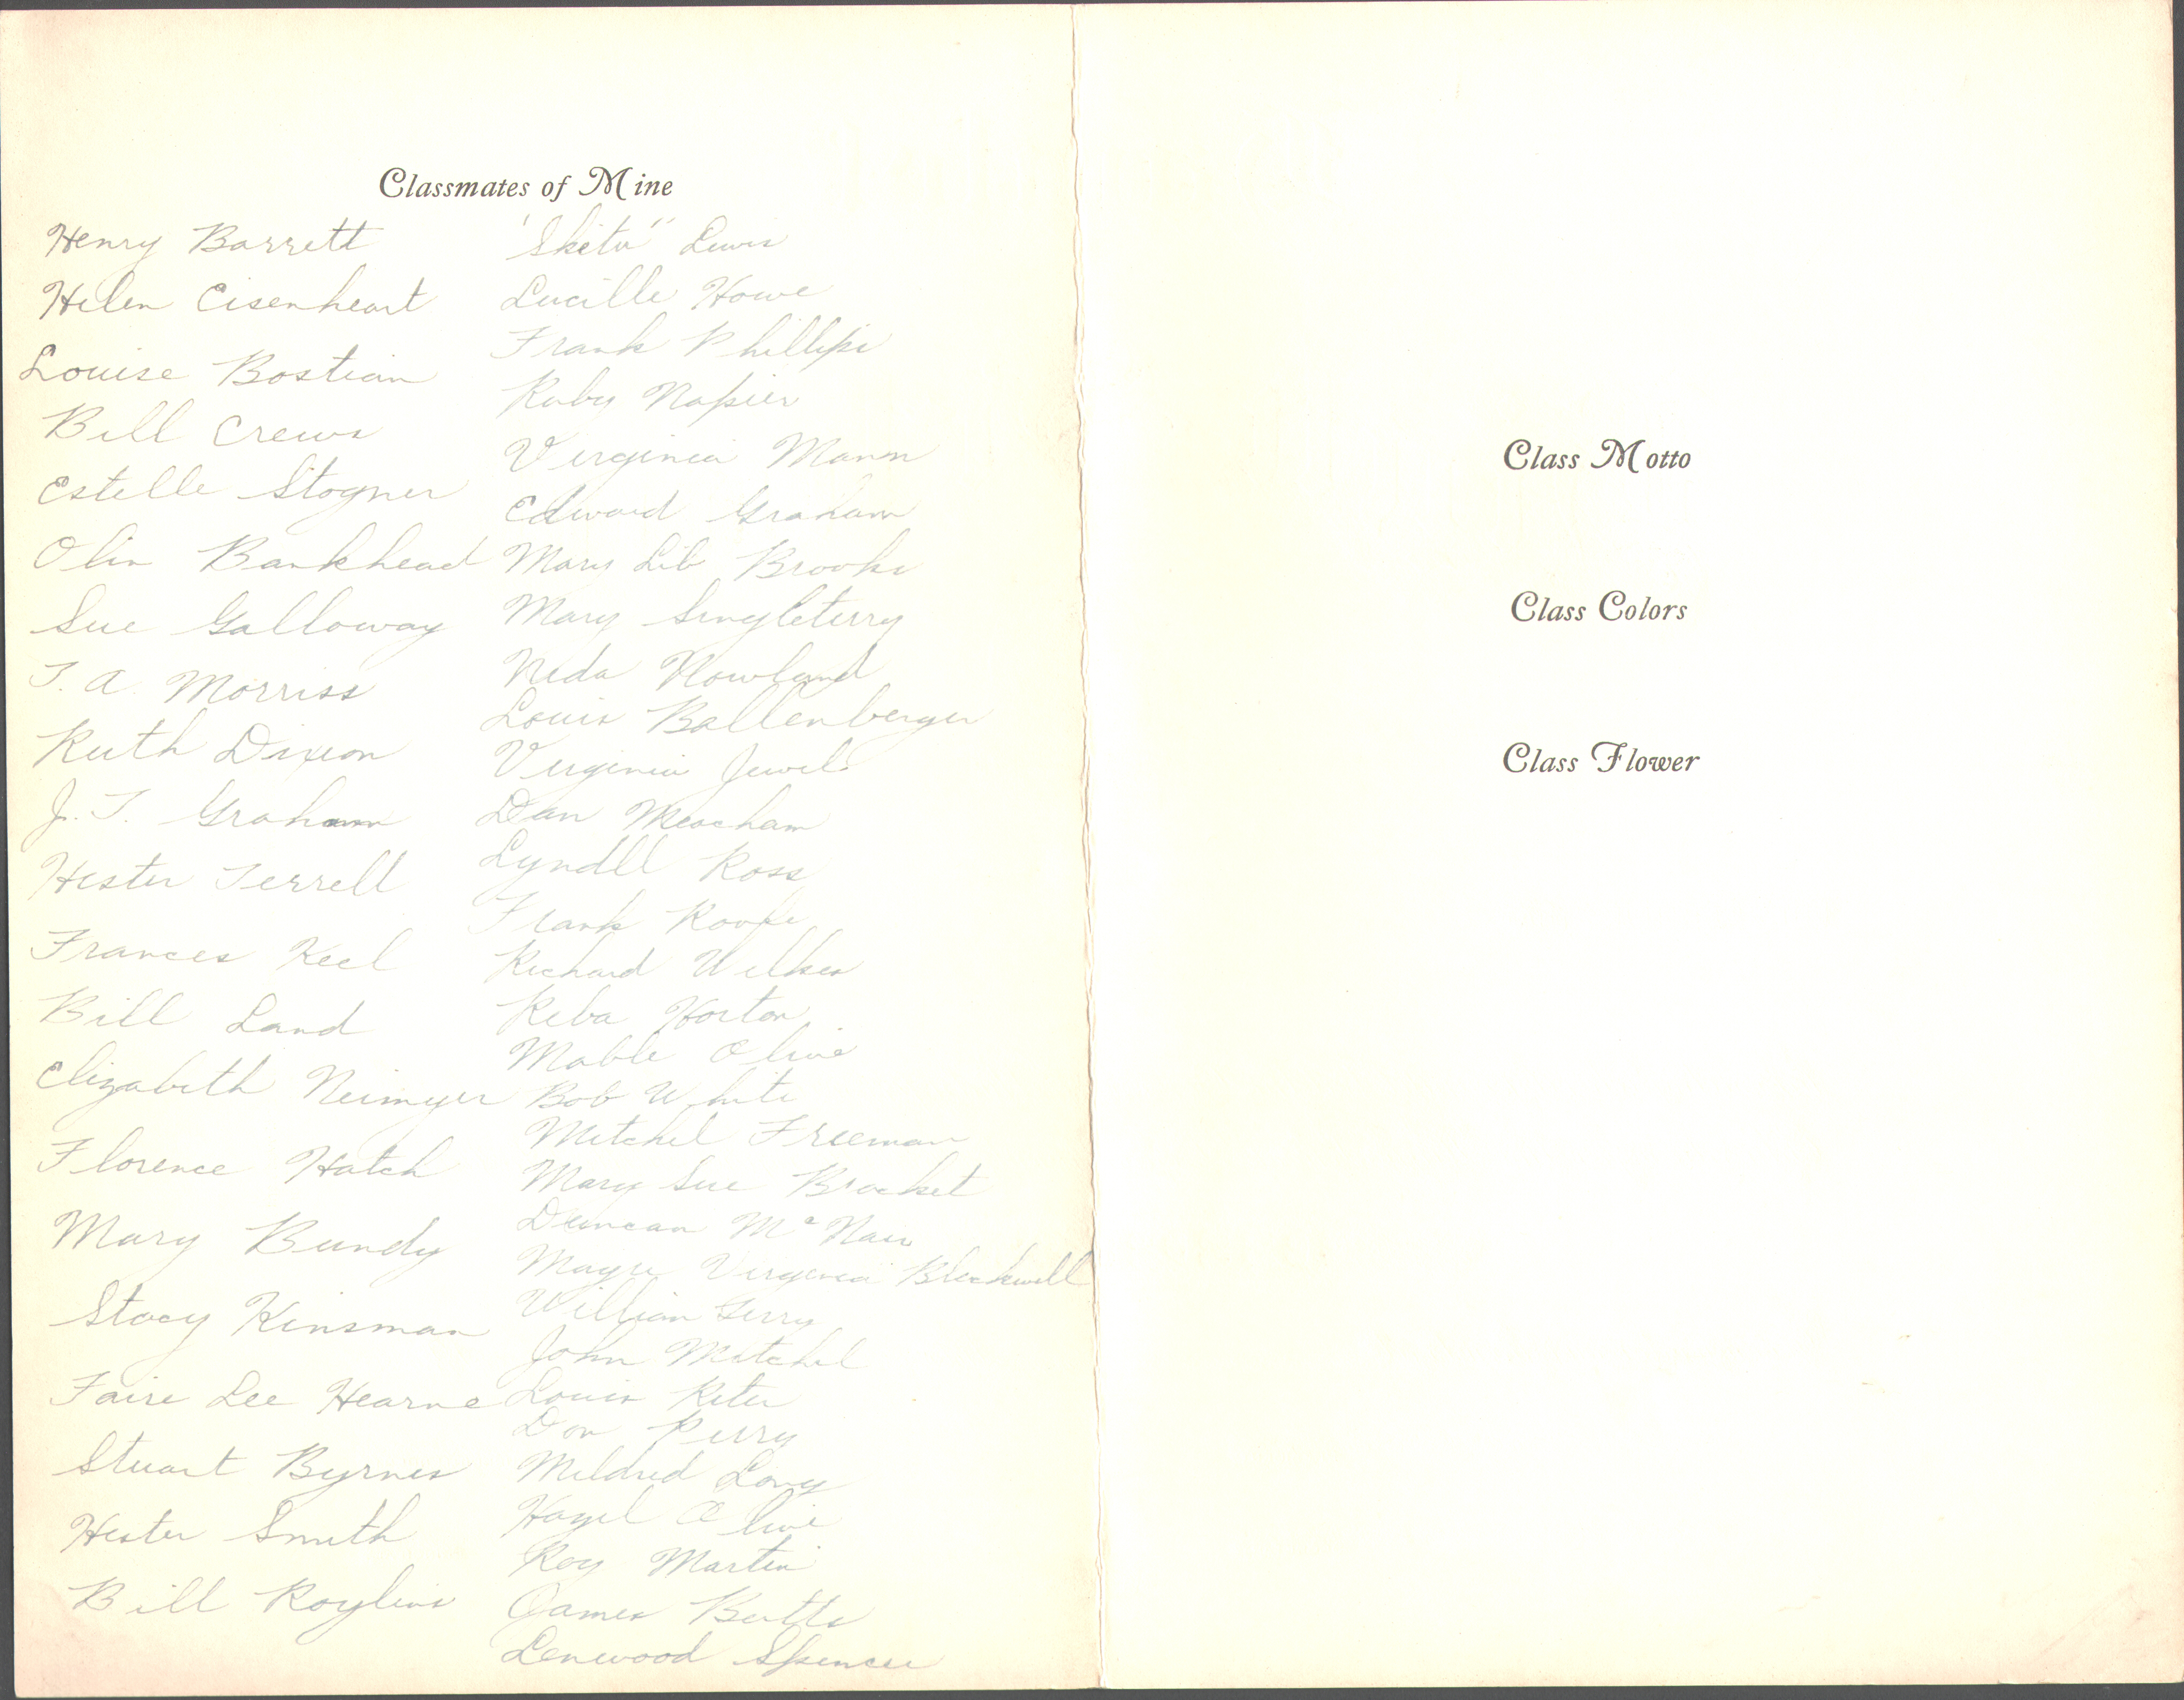 Classmates of Mine
Henry Barrett
Helen Eisenheart
Louise Bostian
Bill Crews
Estelle Stogner
Olin Bankhead
Sue Galloway
T. A. Morriss
Ruth Dixon
J. T. Graham
Hester Terrell
Frances Keel
Bill Land
Elizabeth Neimyer
Florence Hatch
Mary Bundy
Stacy Kinsman
Faire Lee Hearne
Stuart Byrnes
Hester Smith
Bill
"Skeeter" Lewis
Lucille Howe
Frank Phillips
Ruby Napier
Virginia Mann
Edward Graham
Mary Lib Brooks
Mary Singleterry
Neda Rowland
Louis Ballenberger
Virginia Jewel
Dan Meacham
Lyndll Ross
Frank Roope
Richard Wilkes
Reba Horton
Mable Olive
Bob White
Mitchel Freeman
Mary Sue Brocket
Duncan McNair
Virginia Blackwell
William Gerry
John Mitchel
Louis
Don Perry
Mildred Long
Hazel Olive
Roy Martin
James Butts
Lenwood Spencer
Class Motto
Class Colors
Class Flower